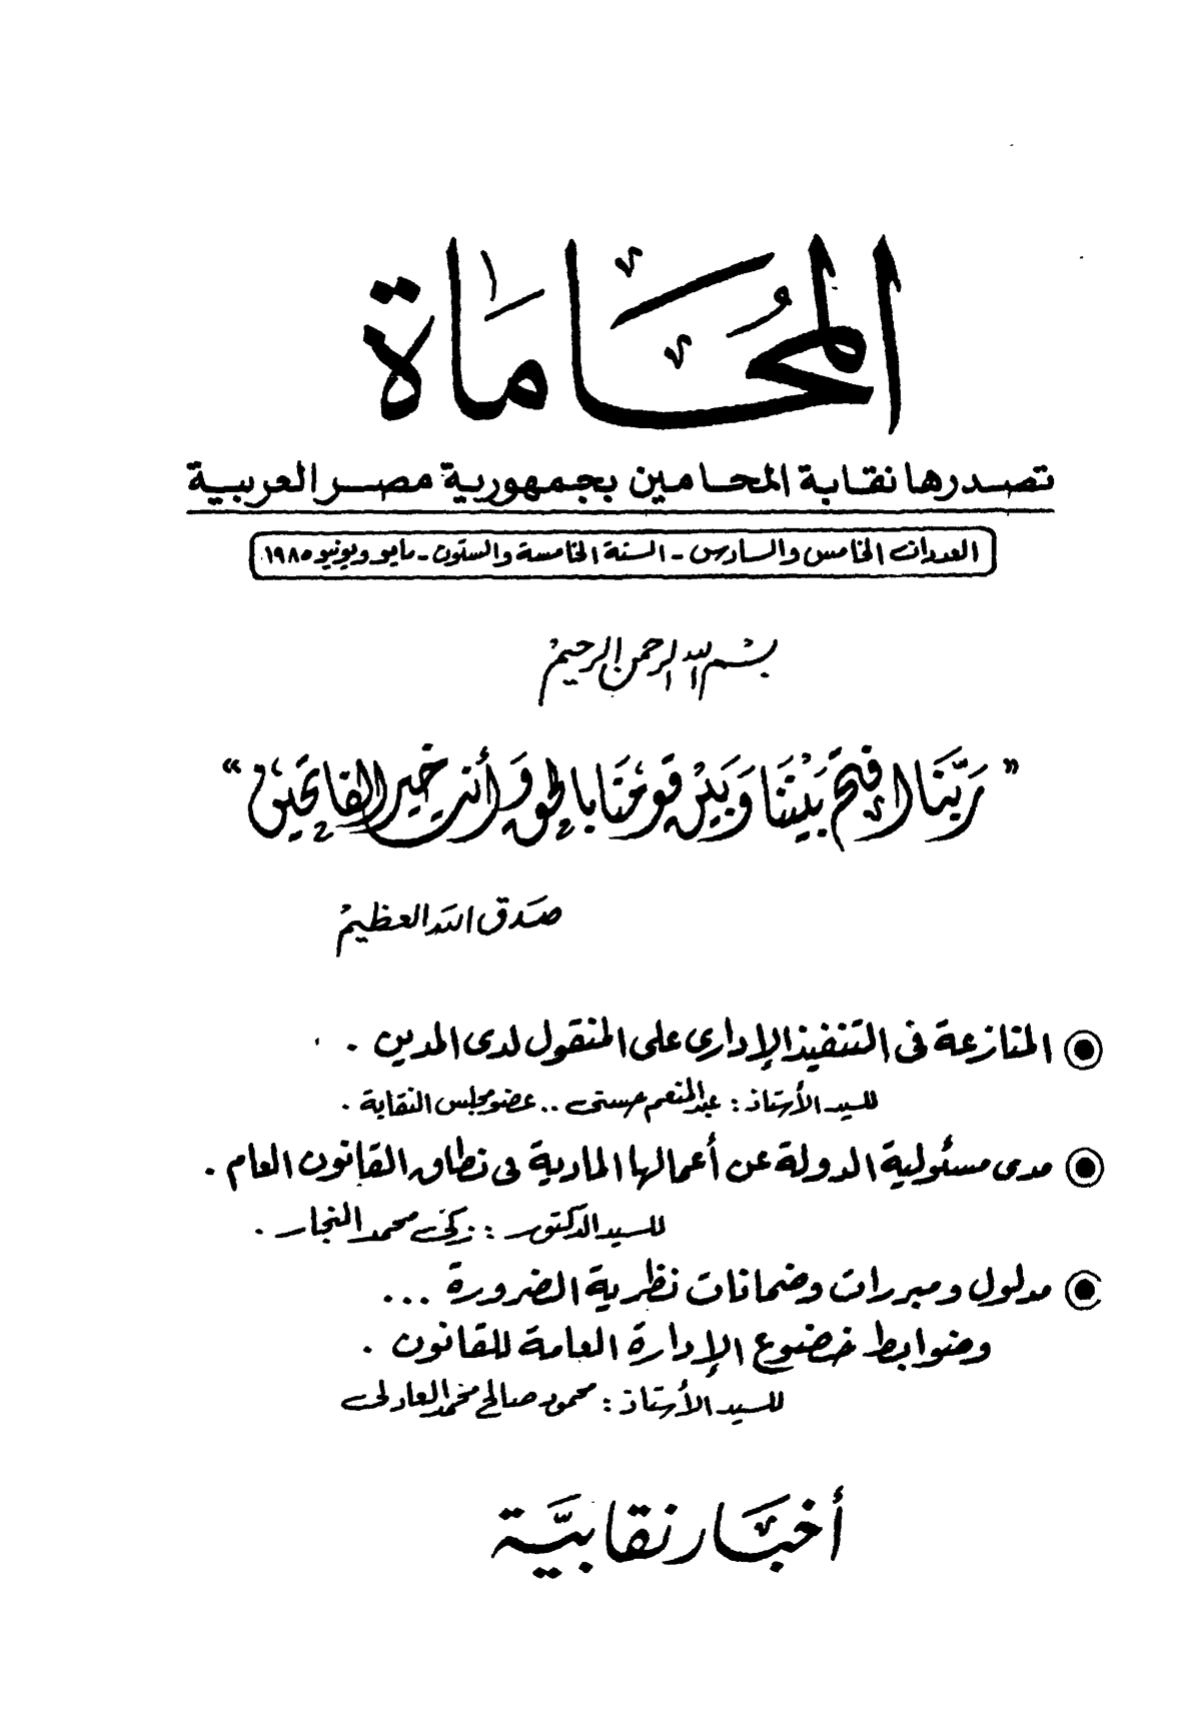 المحاماة
تصدرها نقابة المحامين بجمهورية مصر العربية
العددان الخامس والسادس - السنة الخامسة والستون - مايو ويونيو ١٩٨٥
بسم الله الرحمن الرحيم
" رَبَّنَا افتَح بَيْنَنَا وَبَيْن قَومَنَا بالحق وَأنت خير الفاتحين "
صَدَق الله العظيم
المنازعة فى التنفيذ الإدارى على المنقول لدى المدين .
للسيد الأستاذ : عبد المنعم حسنى .. عضو مجلس النقابة .
مدى مسئولية الدولة عن أعمالها المادية فى نطاق القانون العام .
للسيد الدكتور : زكى محمد النجار .
مدلول ومبررات وضمانات نظرية الضرورة ...
وضوابط خضوع الإدارة العامة للقانون .
للسيد الأستاذ : محمود صالح محمد العادلى
أخبار نقابيَّة